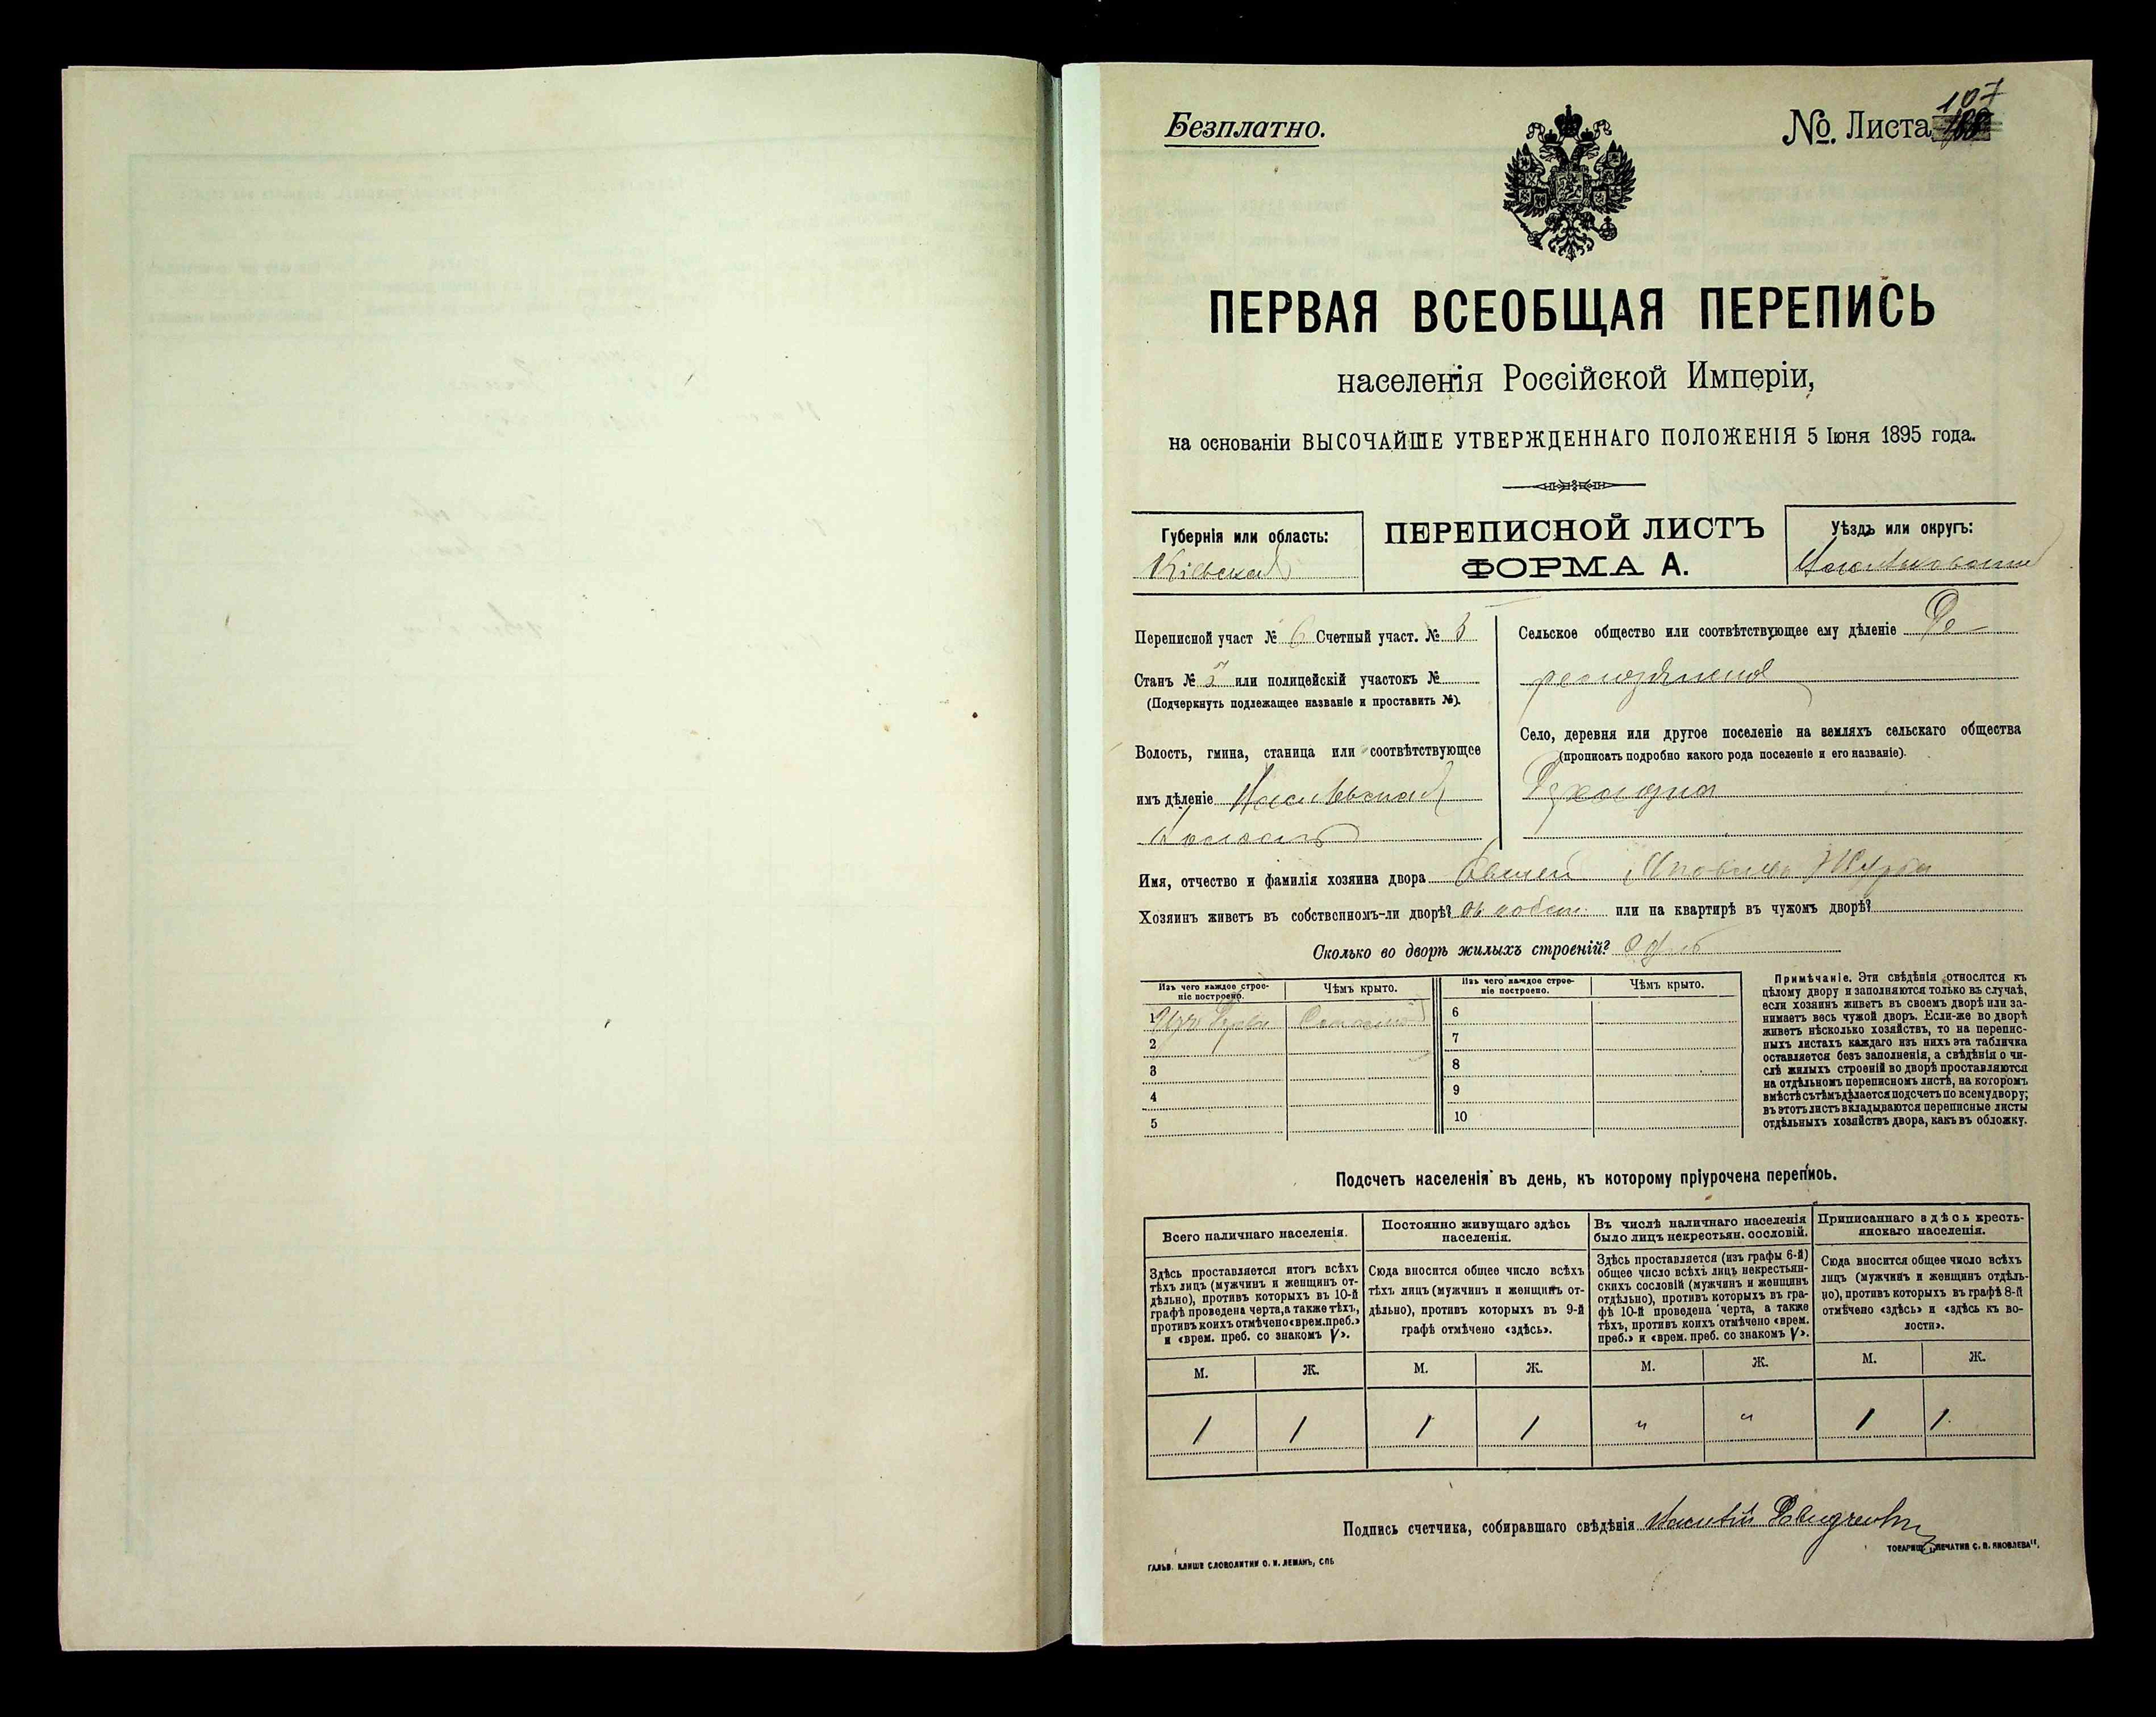 Безплатно.
№ Листа 107
ПЕРВАЯ ВСЕОБЩАЯ ПЕРЕПИСЬ
населенія Россійской Имперіи,
на основаніи ВЫСОЧАЙШЕ УТВЕРЖДЕННАГО ПОЛОЖЕНІЯ 5 Іюня 1895 года.
Губернія или область:
Кіевская
ПЕРЕПИСНОЙ ЛИСТЪ
ФОРМА А.
Уѣздъ или округъ:
Переписной участ № 6 Счетный участ. № 5
Станъ № 5 или полицейскій участокъ №
(Подчеркнуть подлежащее названіе и проставить №).
Волость, гмина, станица или соотвѣтствующее
имъ дѣленіе
волость
Сельское общество или соотвѣтствующее ему дѣленіе
Село, деревня или другое поселеніе на земляхъ сельскаго общества
(прописать подробно какого рода поселеніе и его названіе).
Имя, отчество и фамилія хозяина двора
Хозяинъ живетъ въ собственномъ-ли дворѣ? или на квартирѣ въ чужомъ дворѣ?
Сколько во дворѣ жилыхъ строеній? Одно
Изъ чего каждое строе-
ніе построено.
Чѣмъ крыто.
Изъ чего каждое строе-
ніе построено.
Чѣмъ крыто.
1 Изъ дерева Соломой
2
3
4
5
6
7
8
9
10
Примѣчаніе. Эти свѣдѣнія относятся къ
цѣлому двору и заполняются только въ случаѣ,
если хозяинъ живетъ въ своемъ дворѣ или за-
нимаетъ весь чужой дворъ. Если-же во дворѣ
живетъ нѣсколько хозяйствъ, то на перепис-
ныхъ листахъ каждаго изъ нихъ эта табличка
оставляется безъ заполненія, а свѣдѣнія о чи-
слѣ жилыхъ строеній во дворѣ проставляются
на отдѣльномъ переписномъ листѣ, на которомъ
вмѣстѣ съ тѣмъ дѣлается подсчетъ по всему двору;
въ этотъ листъ вкладываются переписные листы
отдѣльныхъ хозяйствъ двора, какъ въ обложку.
Подсчетъ населенія въ день, къ которому пріурочена перепись.
Всего наличнаго населенія.
Здѣсь проставляется итогъ всѣхъ
тѣхъ лицъ (мужчинъ и женщинъ от-
дѣльно), противъ которыхъ въ 10-й
графѣ проведена черта, а также тѣхъ,
противъ коихъ отмѣчено «врем. преб.»
и «врем. преб. со знакомъ V».
Постоянно живущаго здѣсь
населенія.
Сюда вносится общее число всѣхъ
тѣхъ лицъ (мужчинъ и женщинъ от-
дѣльно), противъ которыхъ въ 9-й
графѣ отмѣчено «здѣсь».
Въ числѣ наличнаго населенія
было лицъ некрестьян. сословій.
Здѣсь проставляется (изъ графы 6-й)
общее число всѣхъ лицъ некрестьян-
скихъ сословій (мужчинъ и женщинъ
отдѣльно), противъ которыхъ въ гра-
фѣ 10-й проведена черта, а также
тѣхъ, противъ коихъ отмѣчено «врем.
преб.» и «врем. преб. со знакомъ V».
Приписаннаго здѣсь кресть-
янскаго населенія.
Сюда вносится общее число всѣхъ
лицъ (мужчинъ и женщинъ отдѣль-
но), противъ которыхъ въ графѣ 8-й
отмѣчено «здѣсь» и «здѣсь къ во-
лости».
М. Ж. М. Ж. М. Ж. М. Ж.
1 1 1 1 " " 1 1
Подпись счетчика, собиравшаго свѣдѣнія
ГАЛЬВ. КЛИШЕ СЛОВОЛИТНИ О. И. ЛЕМАНЪ, СПБ
ТОВАРИЩ. „ПЕЧАТНЯ С. П. ЯКОВЛЕВА".